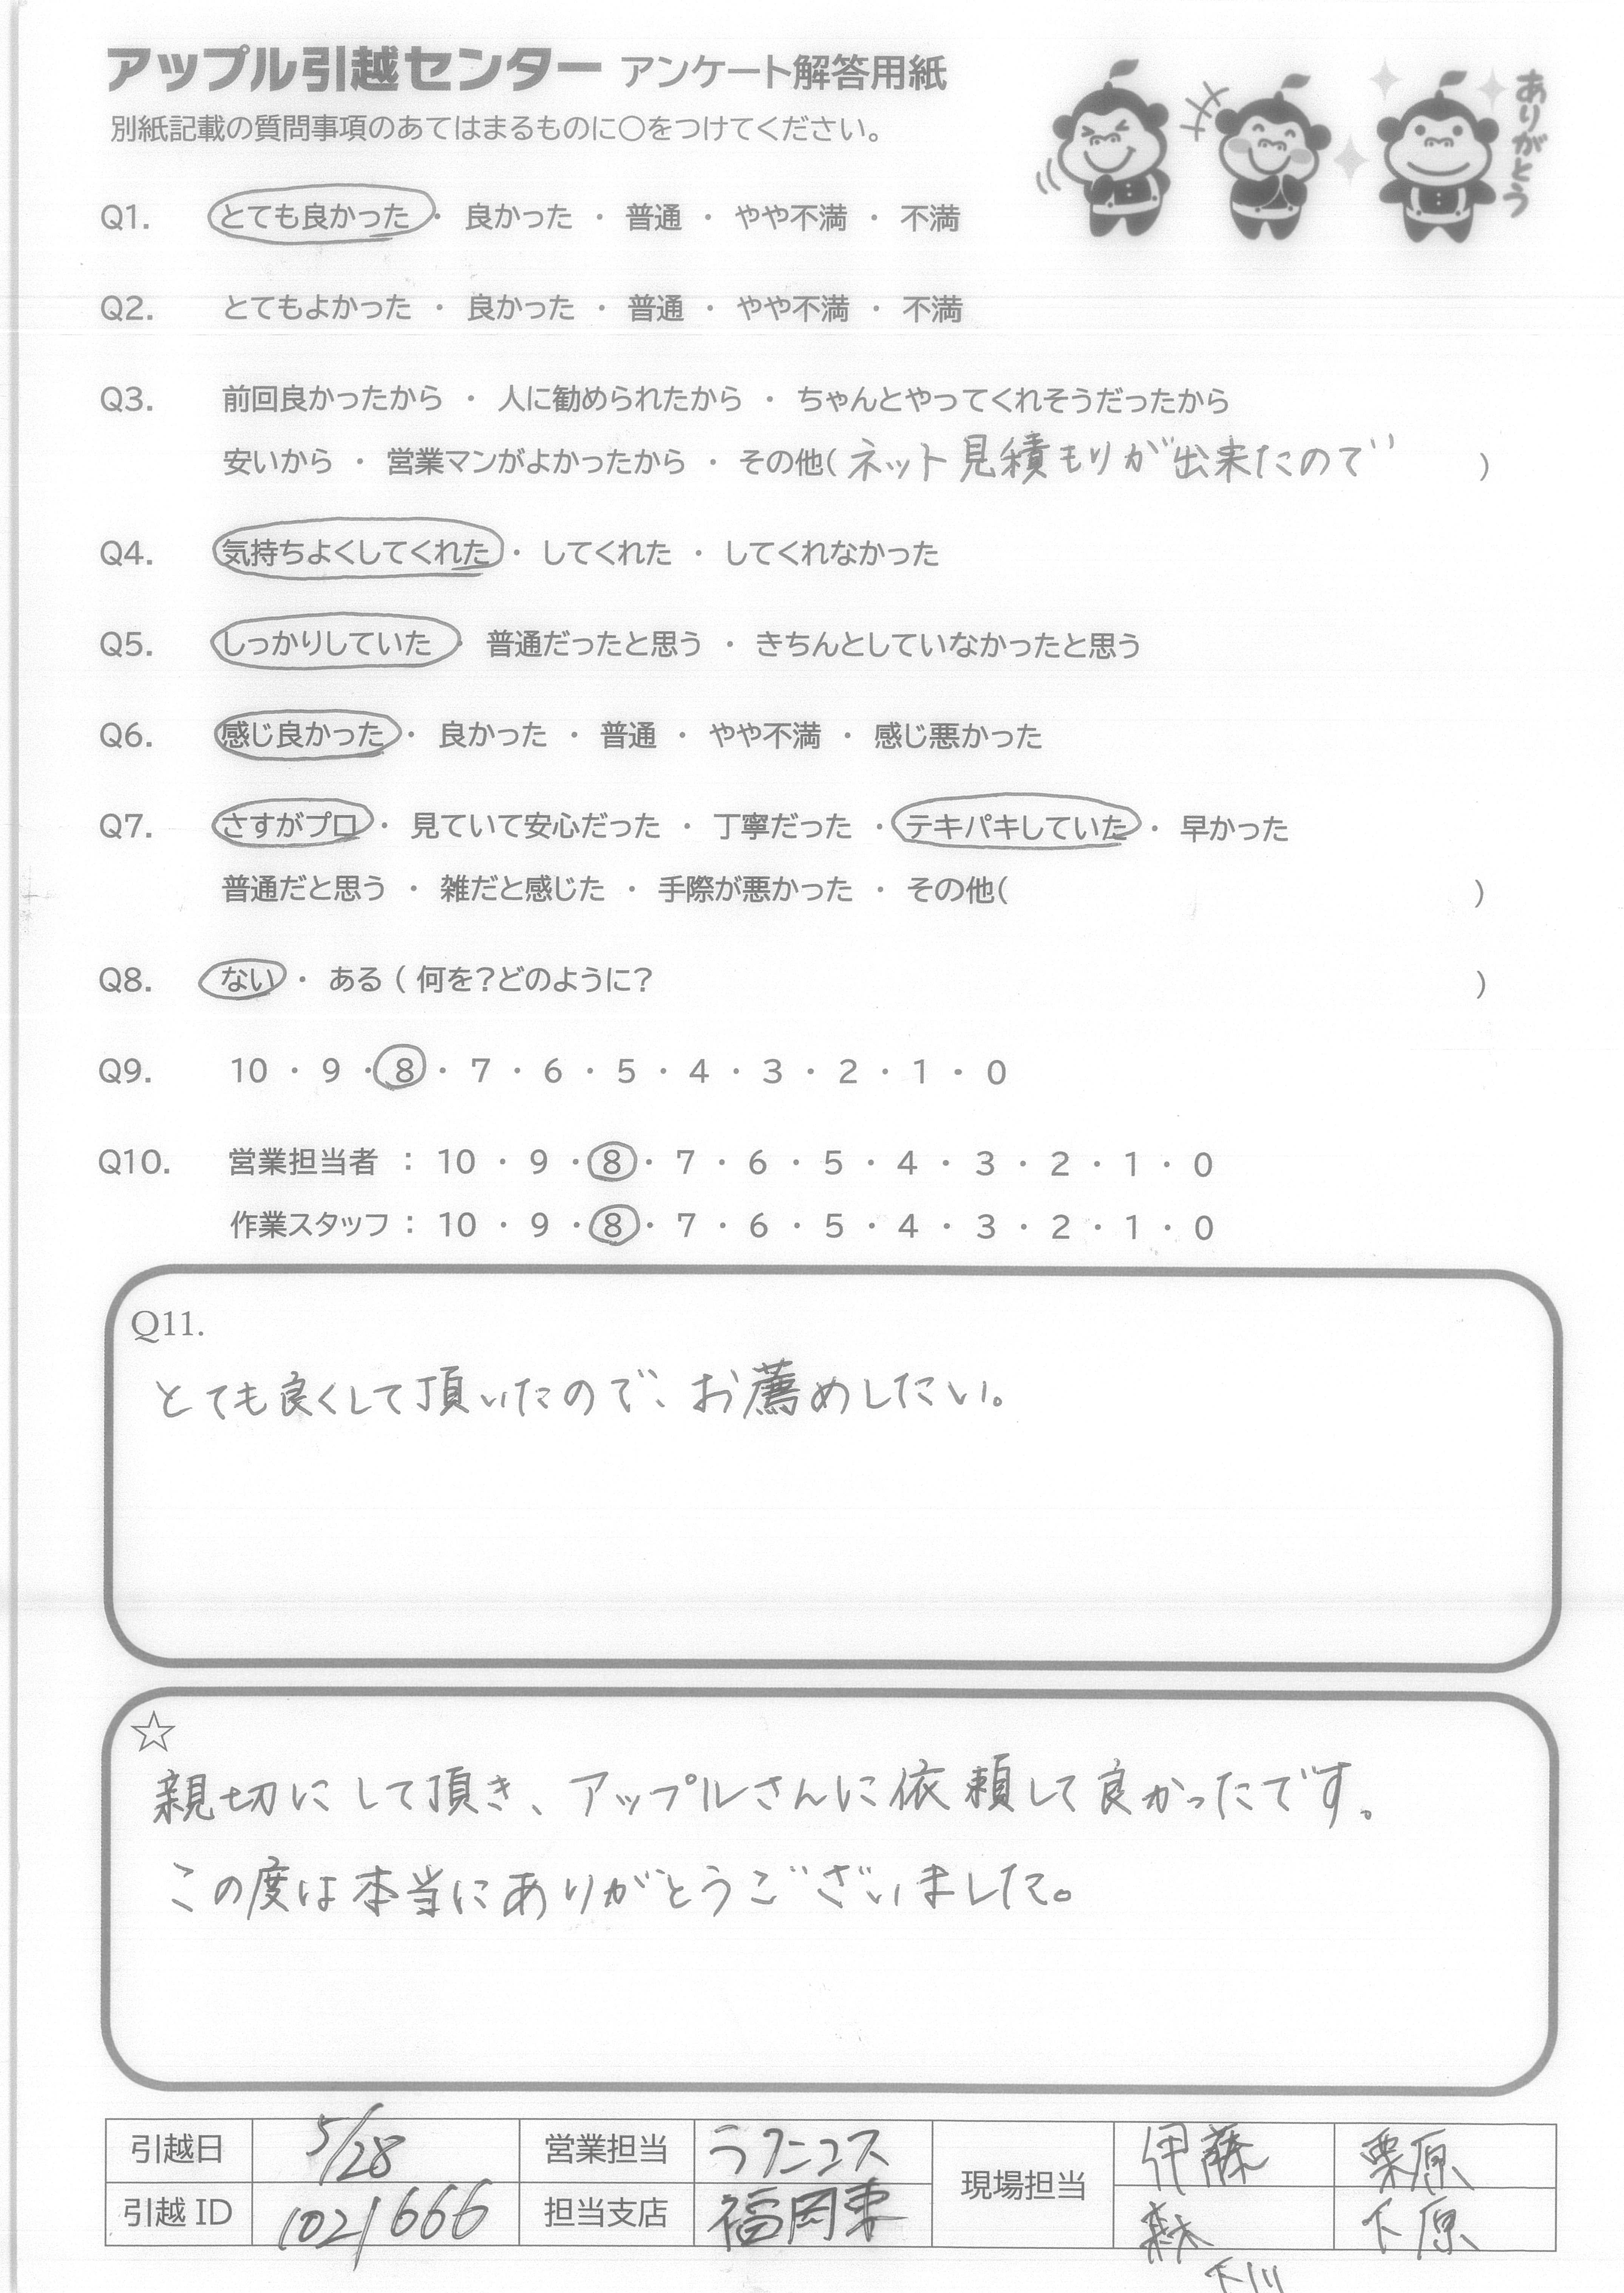 アップル引越センター アンケート解答用紙
別紙記載の質問事項のあてはまるものに〇をつけてください。
ありがとう
Q1. とても良かった ・ 良かった ・ 普通 ・ やや不満 ・ 不満
Q2. とてもよかった ・ 良かった ・ 普通 ・ やや不満 ・ 不満
Q3. 前回良かったから ・ 人に勧められたから ・ ちゃんとやってくれそうだったから
安いから ・ 営業マンがよかったから ・ その他( ネット見積もりが出来たので )
Q4. 気持ちよくしてくれた ・ してくれた ・ してくれなかった
Q5. しっかりしていた ・ 普通だったと思う ・ きちんとしていなかったと思う
Q6. 感じ良かった ・ 良かった ・ 普通 ・ やや不満 ・ 感じ悪かった
Q7. さすがプロ ・ 見ていて安心だった ・ 丁寧だった ・ テキパキしていた ・ 早かった
普通だと思う ・ 雑だと感じた ・ 手際が悪かった ・ その他( )
Q8. ない ・ ある ( 何を?どのように? )
Q9. 10 ・ 9 ・ 8 ・ 7 ・ 6 ・ 5 ・ 4 ・ 3 ・ 2 ・ 1 ・ 0
Q10. 営業担当者 : 10 ・ 9 ・ 8 ・ 7 ・ 6 ・ 5 ・ 4 ・ 3 ・ 2 ・ 1 ・ 0
作業スタッフ : 10 ・ 9 ・ 8 ・ 7 ・ 6 ・ 5 ・ 4 ・ 3 ・ 2 ・ 1 ・ 0
Q11.
とても良くして頂いたので、お薦めしたい。
☆
親切にして頂き、アップルさんに依頼して良かったです。
この度は本当にありがとうございました。
引越日 5/28 営業担当 現場担当 伊藤 栗原
引越ID 1021666 担当支店 福岡東 森 下原
下川